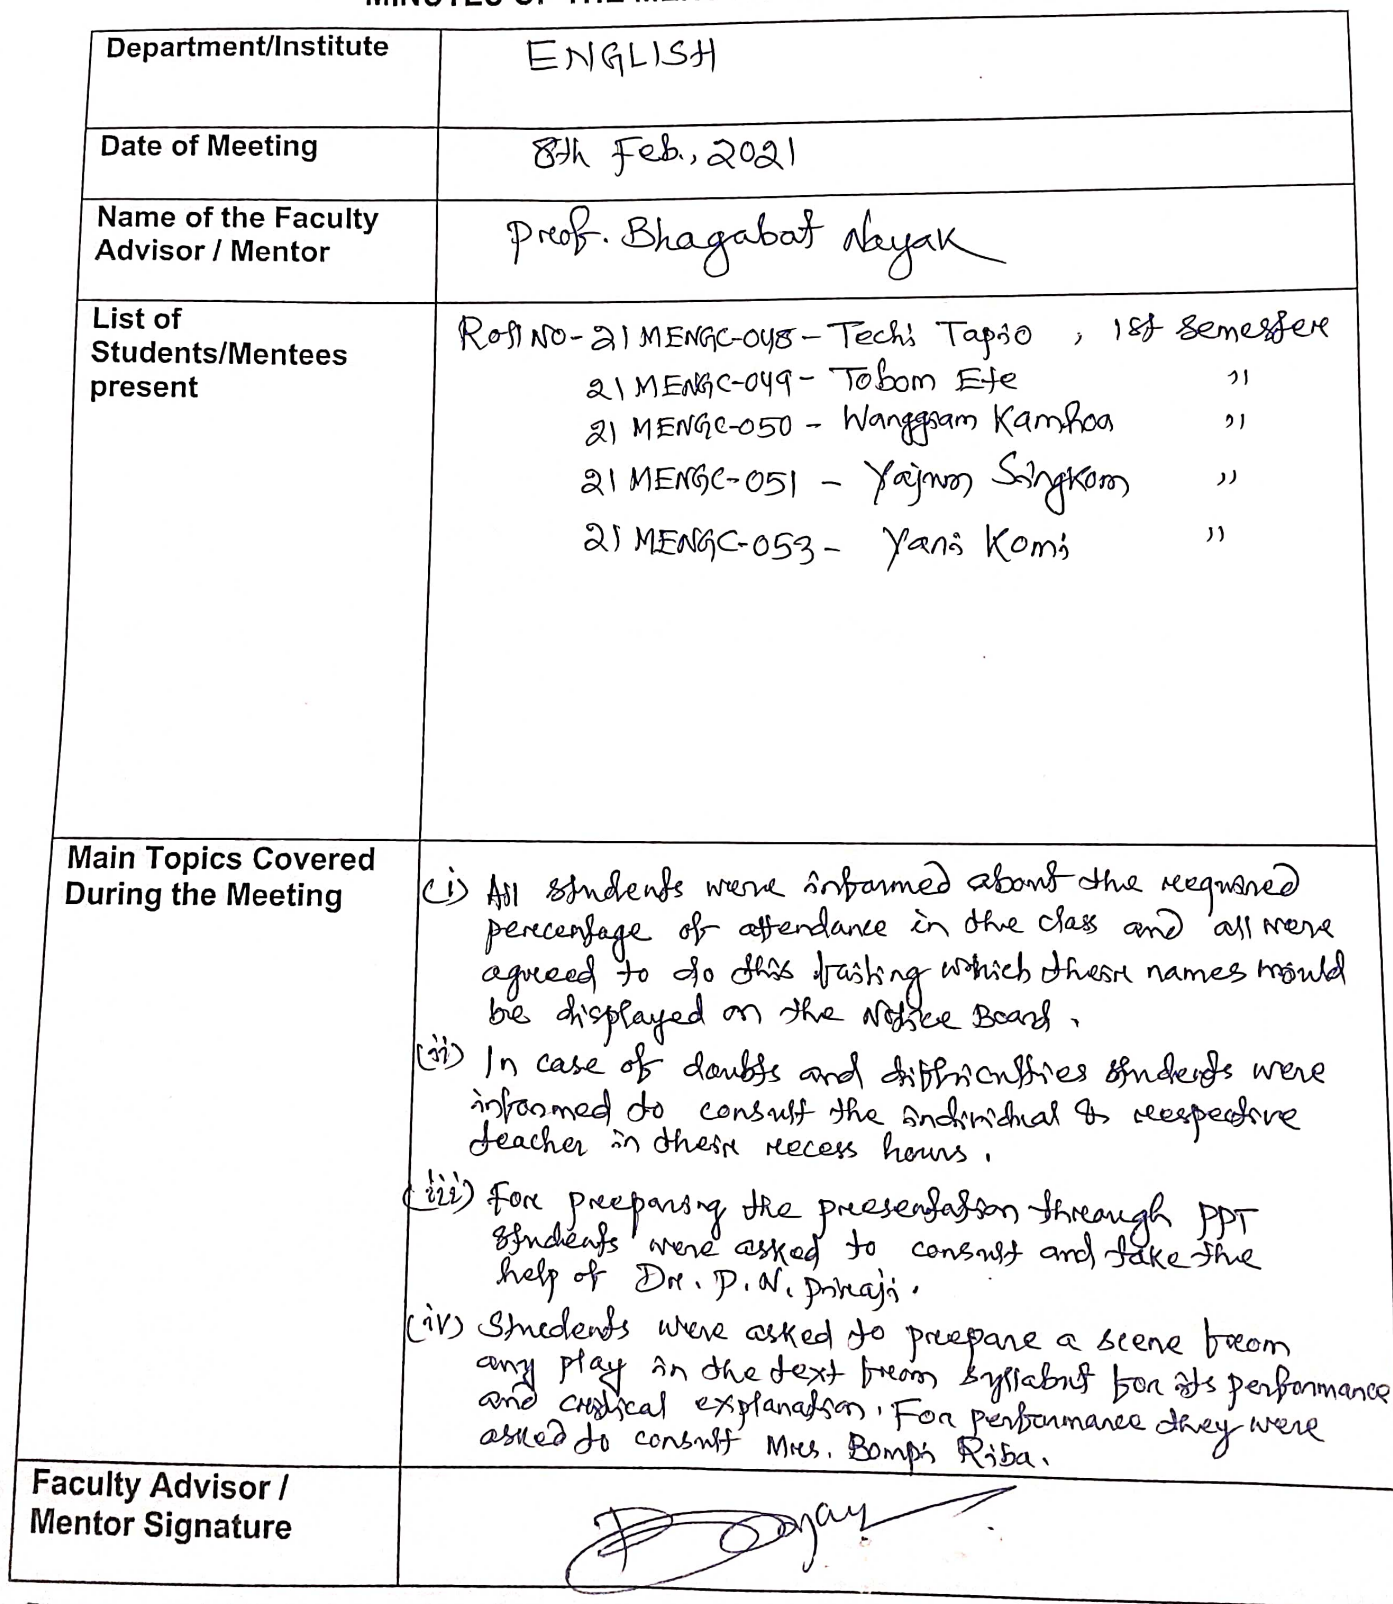 Department/Institute
ENGLISH
Date of Meeting
8th Feb., 2021
Name of the Faculty
Advisor / Mentor
Prof. Bhagabat Nayak
List of
Students/Mentees
present
Roll No-21 MENGC-048 - Techi Tapio , 1st Semester
21 MENGC-049 - Tobom Ete "
21 MENGC-050 - Wanggam Kamhoa "
21 MENGC-051 - Yajum Singkom "
21 MENGC-053 - Yani Komi "
Main Topics Covered
During the Meeting
(i) All students were informed about the required
percentage of attendance in the class and all were
agreed to do this failing which their names would
be displayed on the Notice Board.
(ii) In case of doubts and difficulties students were
informed to consult the individual & respective
teacher in their recess hours.
(iii) For preparing the presentation through PPT
students were asked to consult and take the
help of Dr. P. N.
(iv) Students were asked to prepare a scene from
any play in the text from syllabus for its performance
and critical explanation. For performance they were
asked to consult Mrs. Bompi Riba.
Faculty Advisor /
Mentor Signature